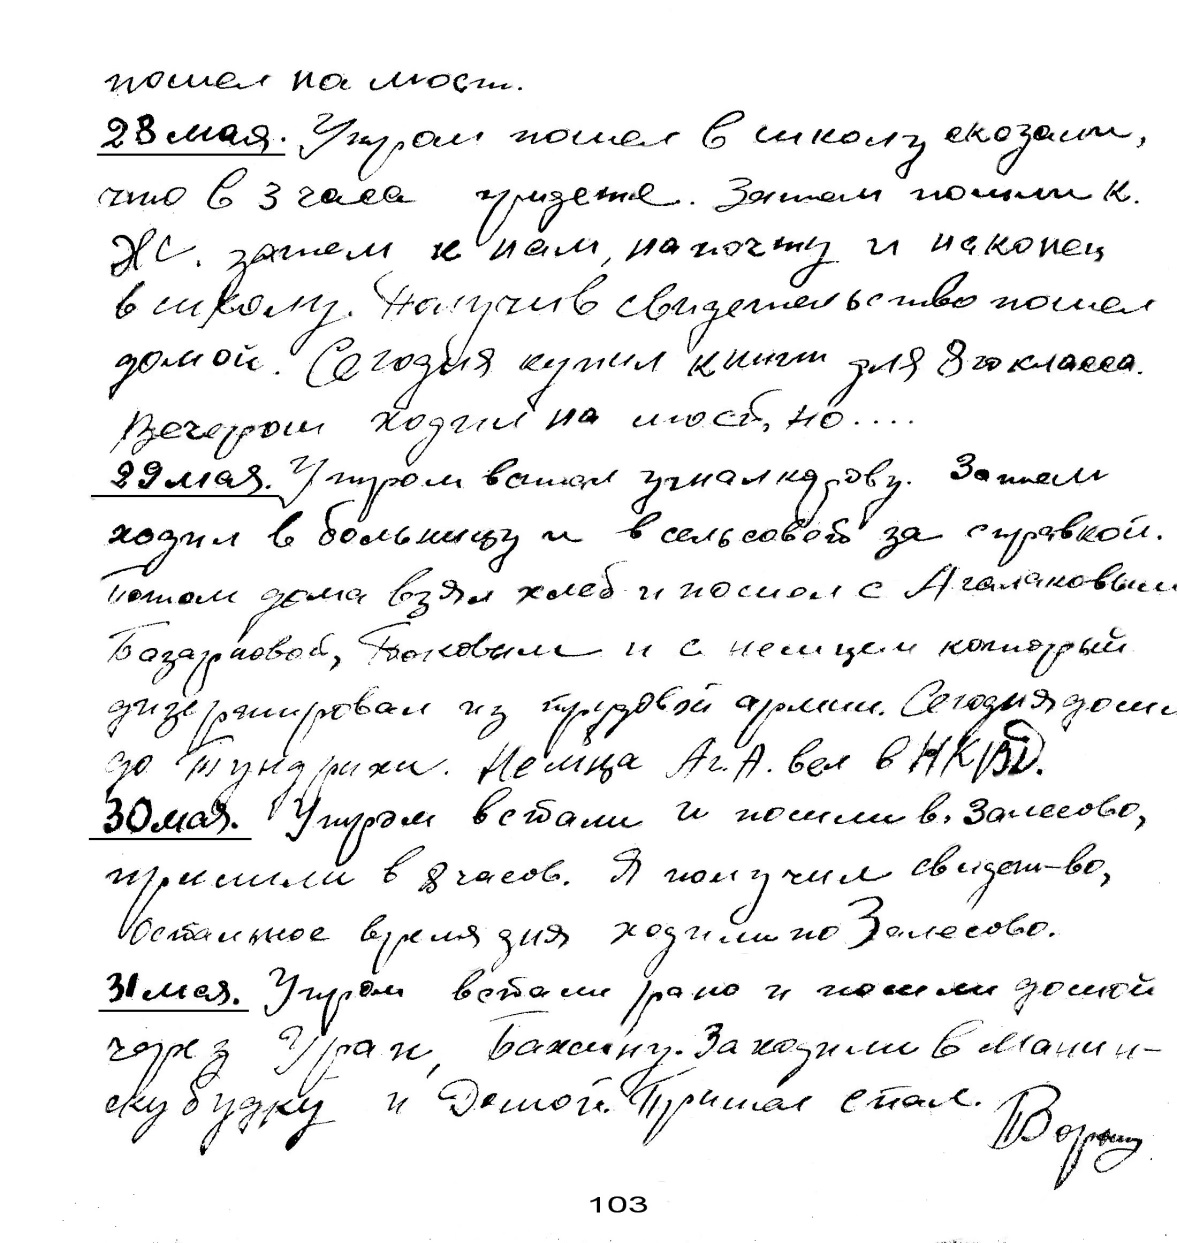 пошел на мост.
28 мая. Утром пошел в школу сказали,
что в 3 часа придете. Затем пошли к
ЖС. затем к нам, на почту и наконец
в школу. Получив свидетельство пошел
домой. Сегодня купил книги для 8го класса.
Вечером ходил на мост, но....
29 мая. Утром встал угнал корову. Затем
ходил в больницу и в сельсовет за справкой.
Потом дома взял хлеб и пошел с Агалаковым
Базарновой, Боковым и с немцем который
дизертировал из трудовой армии. Сегодня дошли
до Тундрихи. Немца Аг. А. вел в НКВД.
30 мая. Утром встали и пошли в. Залесово,
пришли в 8 часов. Я получил свидет-во,
Остальное время дня ходили по Залесово.
31 мая. Утром встали рано и пошли домой
через Уран, Бажину. Заходили в Манин-
ску будку и Домой. Пришел спал.
103